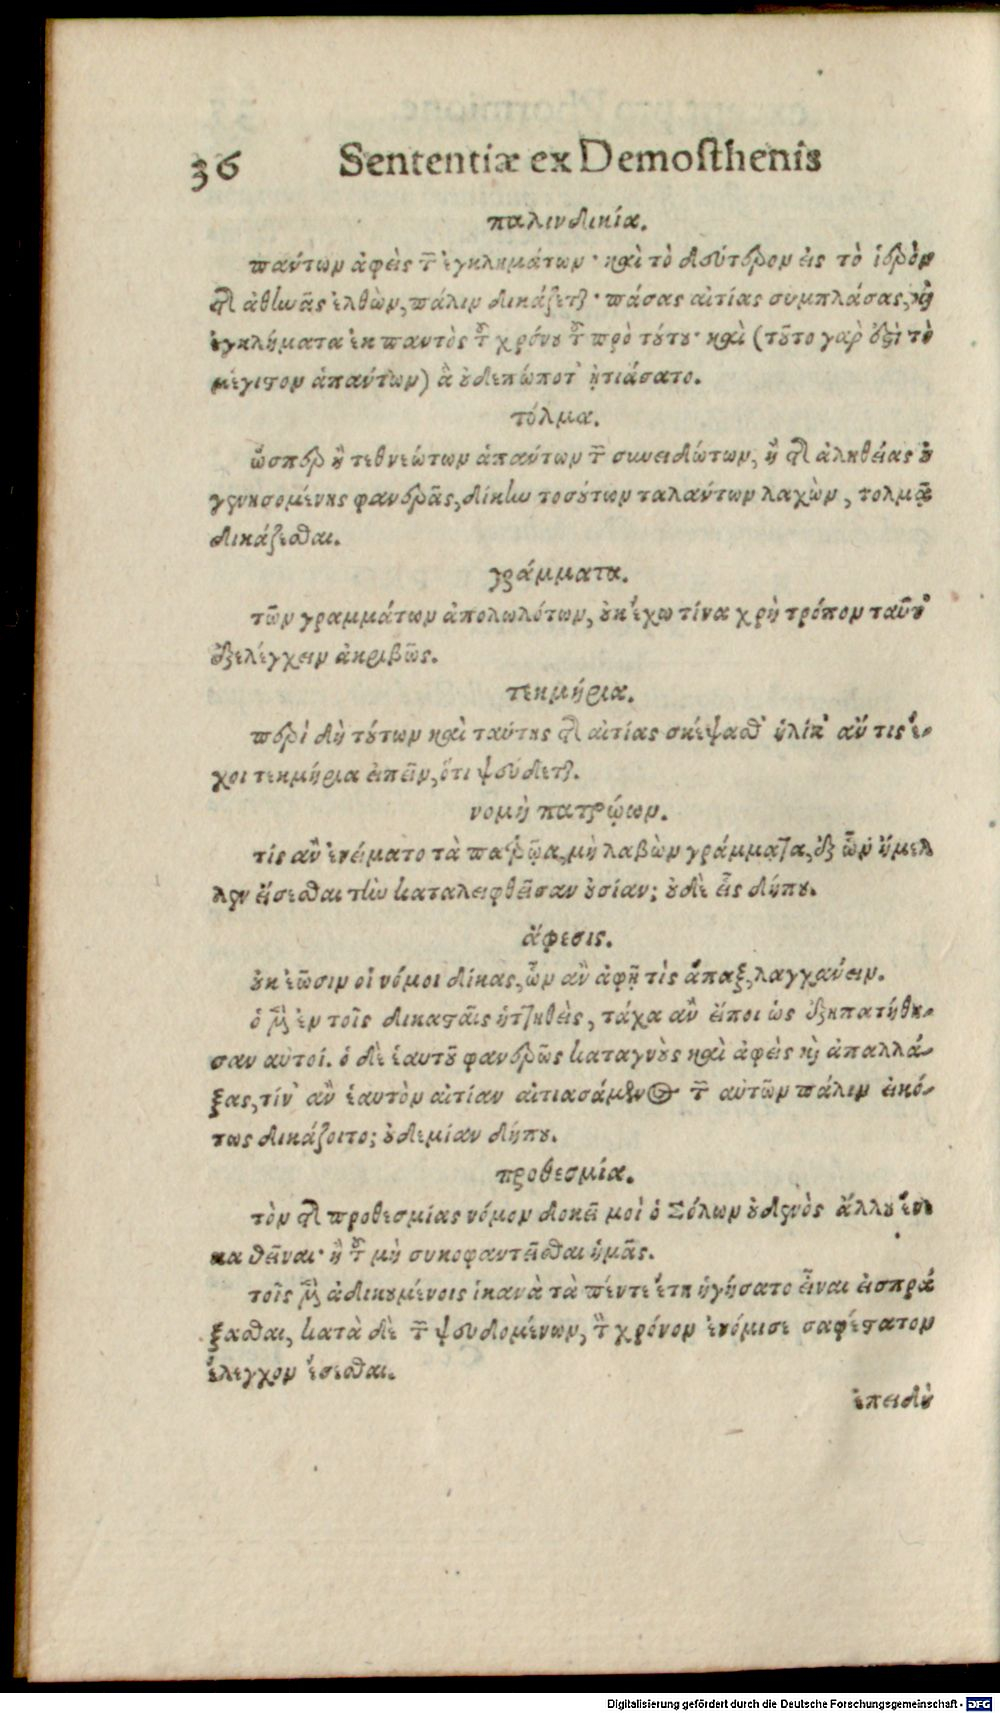 36 Sententiæ ex Demoſthenis
παλινδικία.
πάντων ἀφεὶς τῶν ἐγκλημάτων· καὶ τὸ δεύτερον εἰς τὸ ἱερὸν
τῆς ἀθηνᾶς ἐλθὼν, πάλιν δικάζεται· πάσας αἰτίας συμπλάσας, καὶ
ἐγκλήματα ἐκ παντὸς τοῦ χρόνου τοῦ πρὸ τούτου· καὶ (τοῦτο γὰρ ἐστὶ τὸ
μέγιστον ἁπάντων) ἃ οὐδεπώποτ' ᾐτιάσατο.
τόλμα.
ὥσπερ ἢ τεθνεώτων ἁπάντων τῶν συνειδότων, ἢ τῆς ἀληθείας οὐ
γενησομένης φανερᾶς, δίκην τοσούτων ταλάντων λαχὼν, τολμᾷ
δικάζεσθαι.
γράμματα.
τῶν γραμμάτων ἀπολωλότων, οὐκ ἔχω τίνα χρὴ τρόπον ταῦτ'
ἐξελέγχειν ἀκριβῶς.
τεκμήρια.
περὶ δὴ τούτων καὶ ταύτης τῆς αἰτίας σκέψασθ' ἡλίκ' ἄν τις ἔ-
χοι τεκμήρια εἰπεῖν, ὅτι ψεύδεται.
νομὴ πατρῴων.
τίς ἂν ἐνείματο τὰ πατρῷα, μὴ λαβὼν γράμματα, ἐξ ὧν ἤμελ
λεν εἴσεσθαι τὴν καταλειφθεῖσαν οὐσίαν; οὐδὲ εἷς δήπου.
ἄφεσις.
οὐκ ἐῶσιν οἱ νόμοι δίκας, ὧν ἂν ἀφῇ τὶς ἅπαξ, λαγχάνειν.
ὁ μὲν ἐν τοῖς δικασταῖς ἡττηθεὶς, τάχα ἂν εἴποι ὡς ἐξηπατήθη-
σαν αὐτοί. ὁ δὲ ἑαυτοῦ φανερῶς καταγνοὺς καὶ ἀφεὶς καὶ ἀπαλλά-
ξας, τίν' ἂν ἑαυτὸν αἰτίαν αἰτιασάμενος τῶν αὐτῶν πάλιν εἰκό-
τως δικάζοιτο; οὐδεμίαν δήπου.
προθεσμία.
τὸν τῆς προθεσμίας νόμον δοκεῖ μοὶ ὁ Σόλων οὐδενὸς ἄλλου ἕνε
κα θεῖναι· ἢ τοῦ μὴ συκοφαντεῖσθαι ἡμᾶς.
τοῖς μὲν ἀδικουμένοις ἱκανὰ τὰ πέντε ἔτη ἡγήσατο εἶναι εἰσπρά
ξασθαι, κατὰ δὲ τῶν ψευδομένων, τὸν χρόνον ἐνόμισε σαφέστατον
ἔλεγχον ἔσεσθαι.
ἐπειδὴ
Digitalisierung gefördert durch die Deutsche Forschungsgemeinschaft - DFG